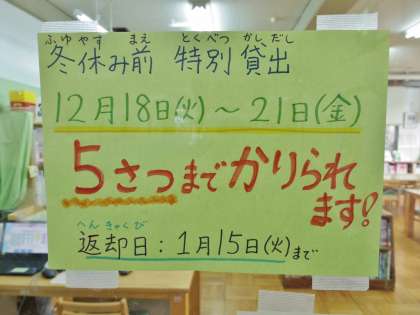 ふゆやすみ まえ とくべつ かしだし
冬休み前 特別 貸出
12月18日(火)～21日(金)
5さつまでかりられ
ます!
へんきゃくび
返却日:1月15日(火)まで